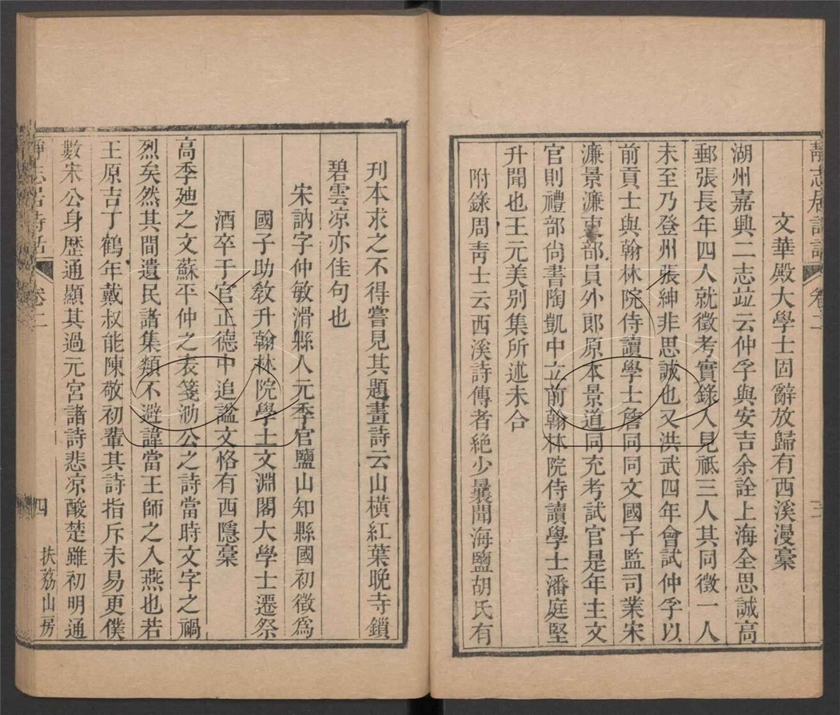 靜志居詩話 卷二 三
文華殿大學士固辭放歸有西溪漫稾
湖州嘉興二志竝云仲孚與安吉余詮上海全思誠高
郵張長年四人就徵考實錄入見祗三人其同徵一人
未至乃登州張紳非思誠也又洪武四年會試仲孚以
前貢士與翰林院侍讀學士詹同同文國子監司業宋
濂景濂吏部員外郎原本景道同充考試官是年主文
官則禮部尙書陶凱中立前翰林院侍讀學士潘庭堅
升聞也王元美別集所述未合
附錄周靑士云西溪詩傳者絶少曩聞海鹽胡氏有
刋本求之不得嘗見其題畫詩云山橫紅葉晚寺鎖
碧雲凉亦佳句也
宋訥字仲敏滑縣人元季官鹽山知縣國初徵爲
國子助敎升翰林院學士文淵閣大學士遷祭
酒卒于官正德中追謚文恪有西隱稾
高季廸之文蘇平仲之表箋泐公之詩當時文字之禍
烈矣然其間遺民諸集類不避諱當王師之入燕也若
王原吉丁鶴年戴叔能陳敬初輩其詩指斥未易更僕
數宋公身歴通顯其過元宮諸詩悲凉酸楚雖初明通
靜志居詩話 卷二 四 扶荔山房